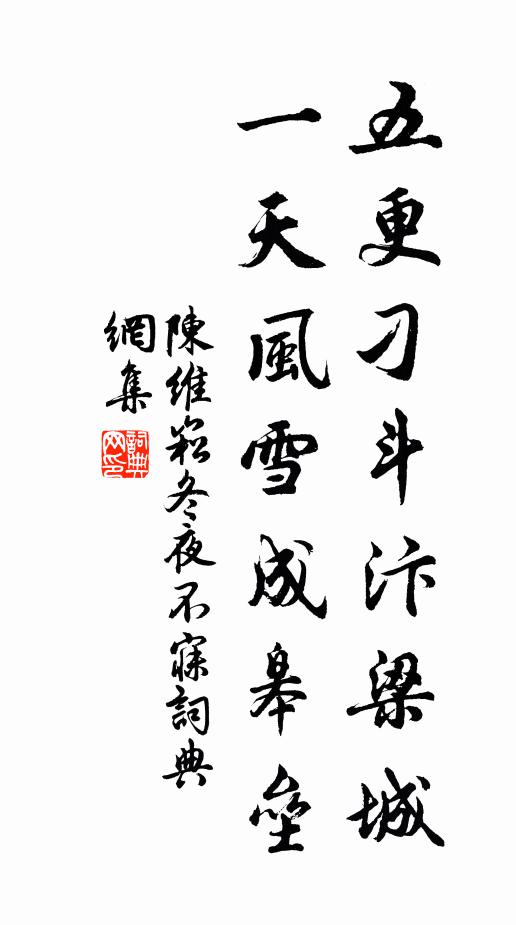 五更刁斗汴梁城
一天風雪成皋壘
陳維崧冬夜不寐詞典
網集
詞典網印